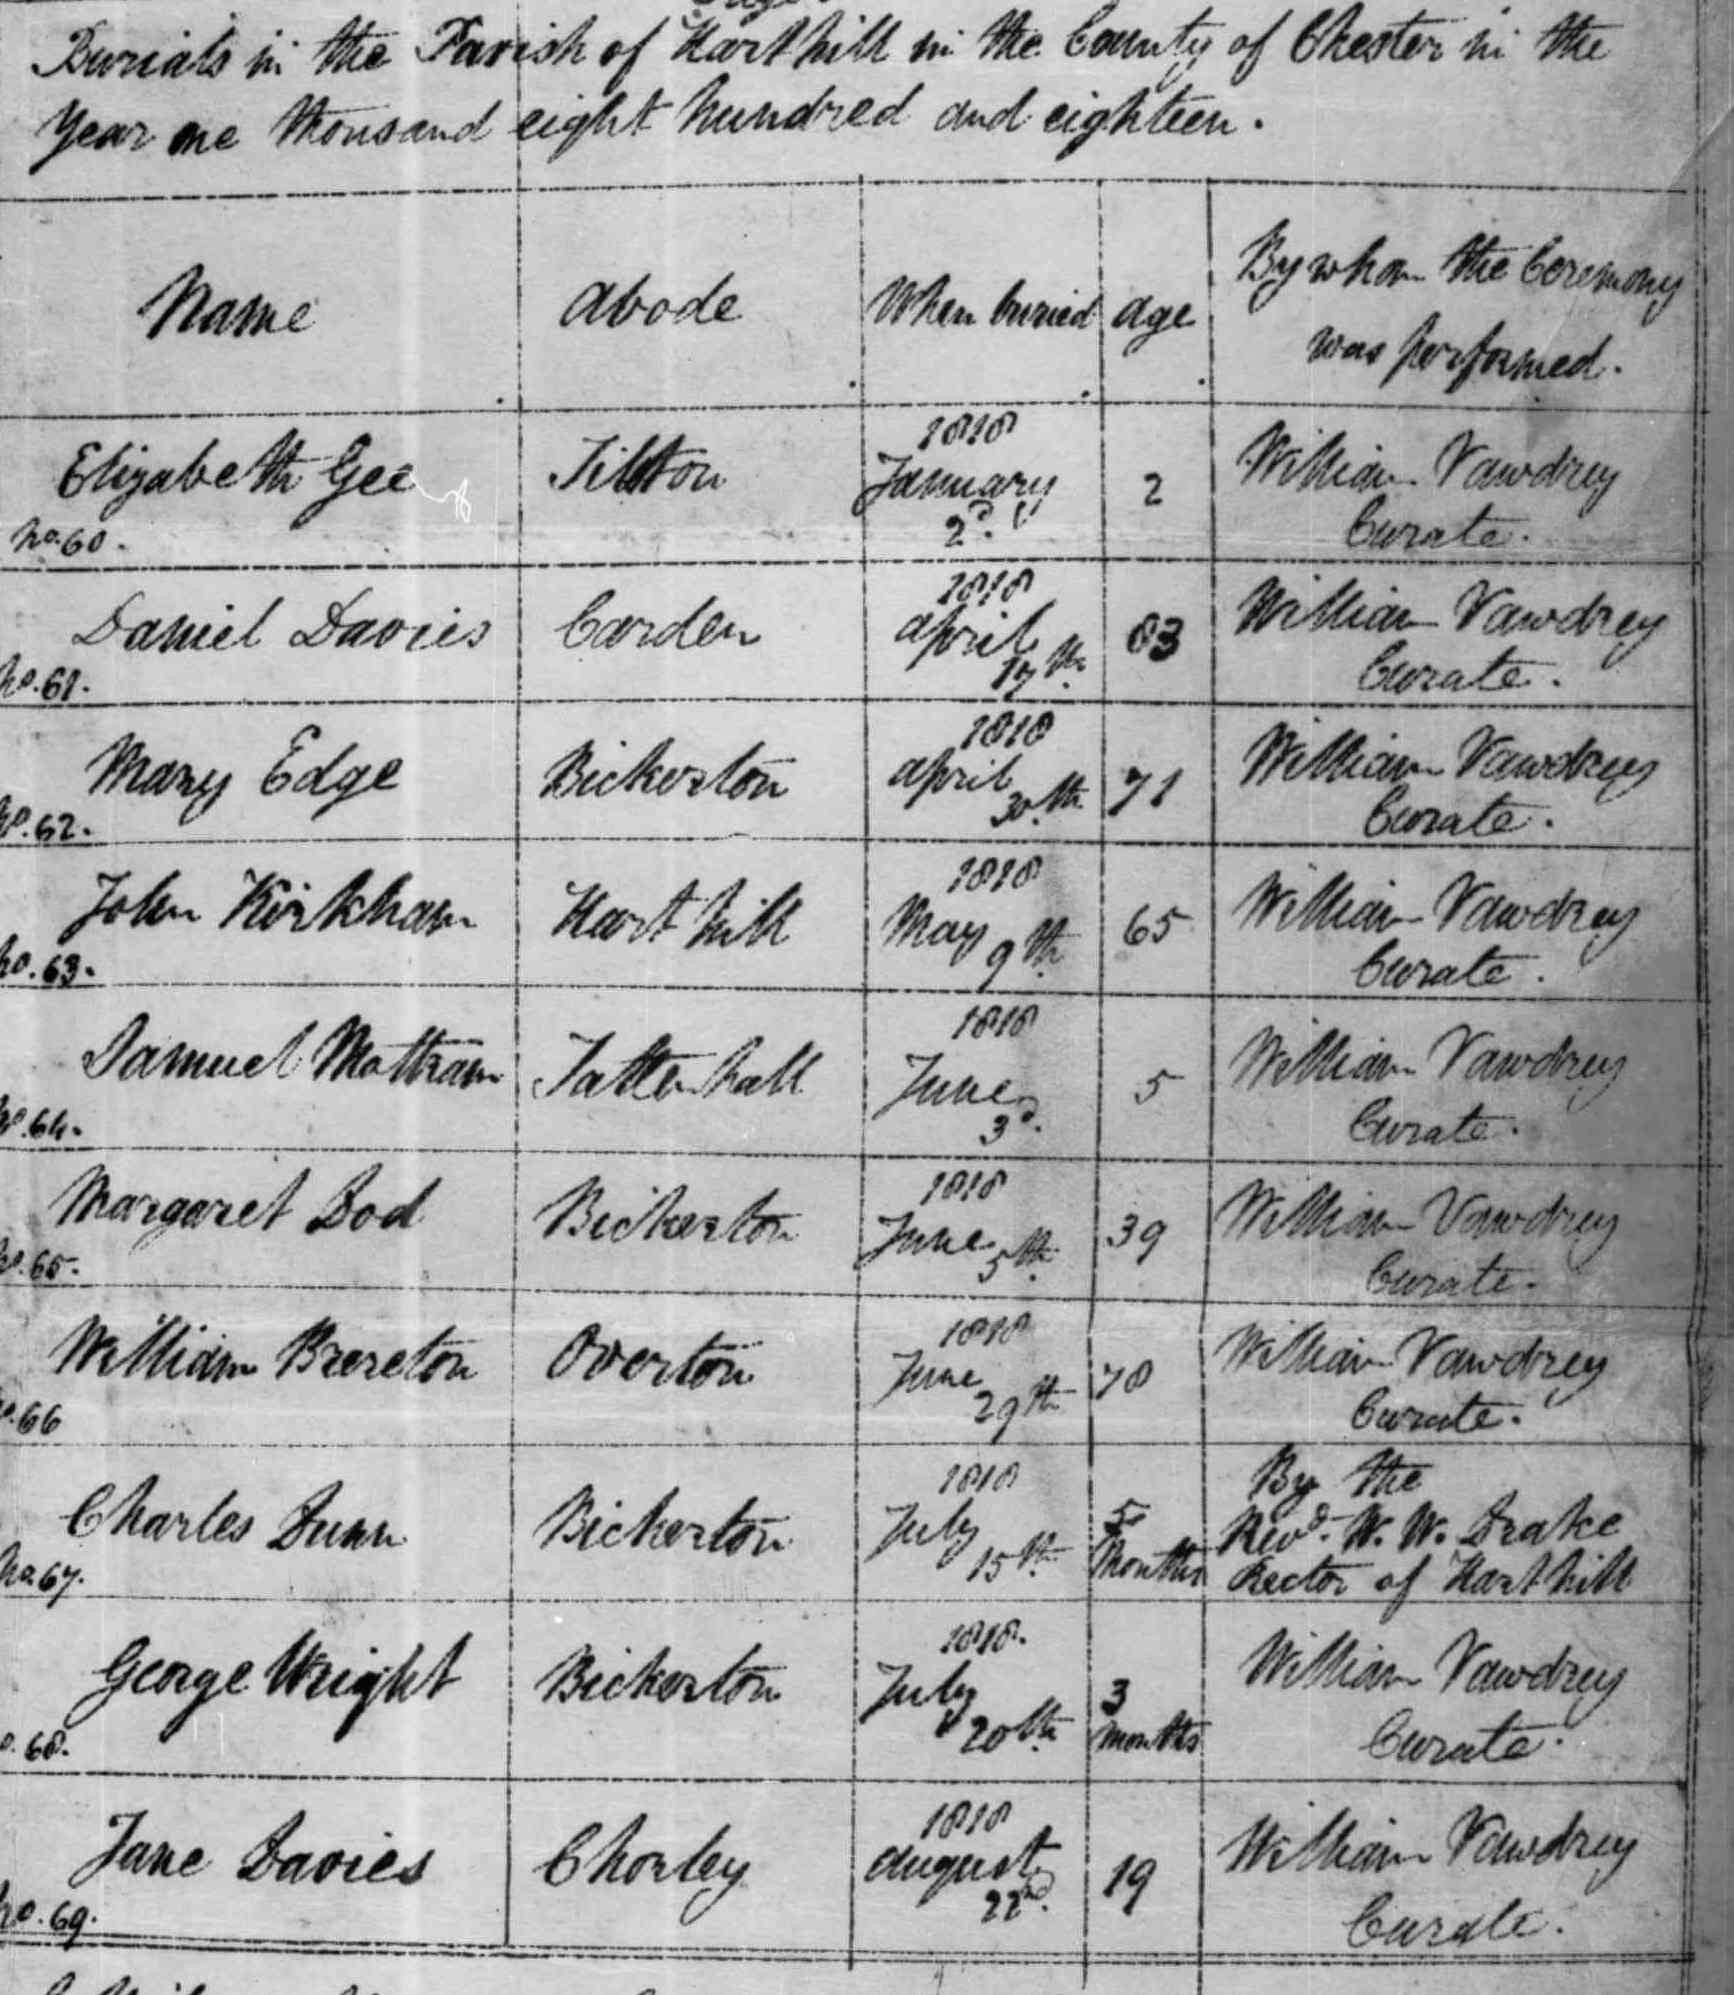 Burials in the Parish of Harthill in the County of Chester in the
Year one thousand eight hundred and eighteen.
Name
Abode
When buried
Age
By whom the Ceremony
was performed.
Elizabeth Gee
No. 60.
Tilston
1818
January
2d.
2
William Vawdrey
Curate.
Daniel Davies
No. 61.
Carden
1818
April
17th
83
William Vawdrey
Curate.
Mary Edge
No. 62.
Bickerton
1818
April
30th
71
William Vawdrey
Curate.
John Kirkham
No. 63.
Harthill
1818
May 9th
65
William Vawdrey
Curate.
Samuel Mottram
No. 64.
Tattenhall
1818
June
3d.
5
William Vawdrey
Curate.
Margaret Dod
No. 65.
Bickerton
1818
June 5th
39
William Vawdrey
Curate.
William Brereton
No. 66
Overton
1818
June
29th
78
William Vawdrey
Curate.
Charles Dunn
No. 67.
Bickerton
1818
July
15th
5
Months
By the
Revd. W. W. Drake
Rector of Harthill
George Wright
No. 68.
Bickerton
1818.
July
20th
3
Months
William Vawdrey
Curate.
Jane Davies
No. 69.
Chorley
1818
August
22nd.
19
William Vawdrey
Curate.